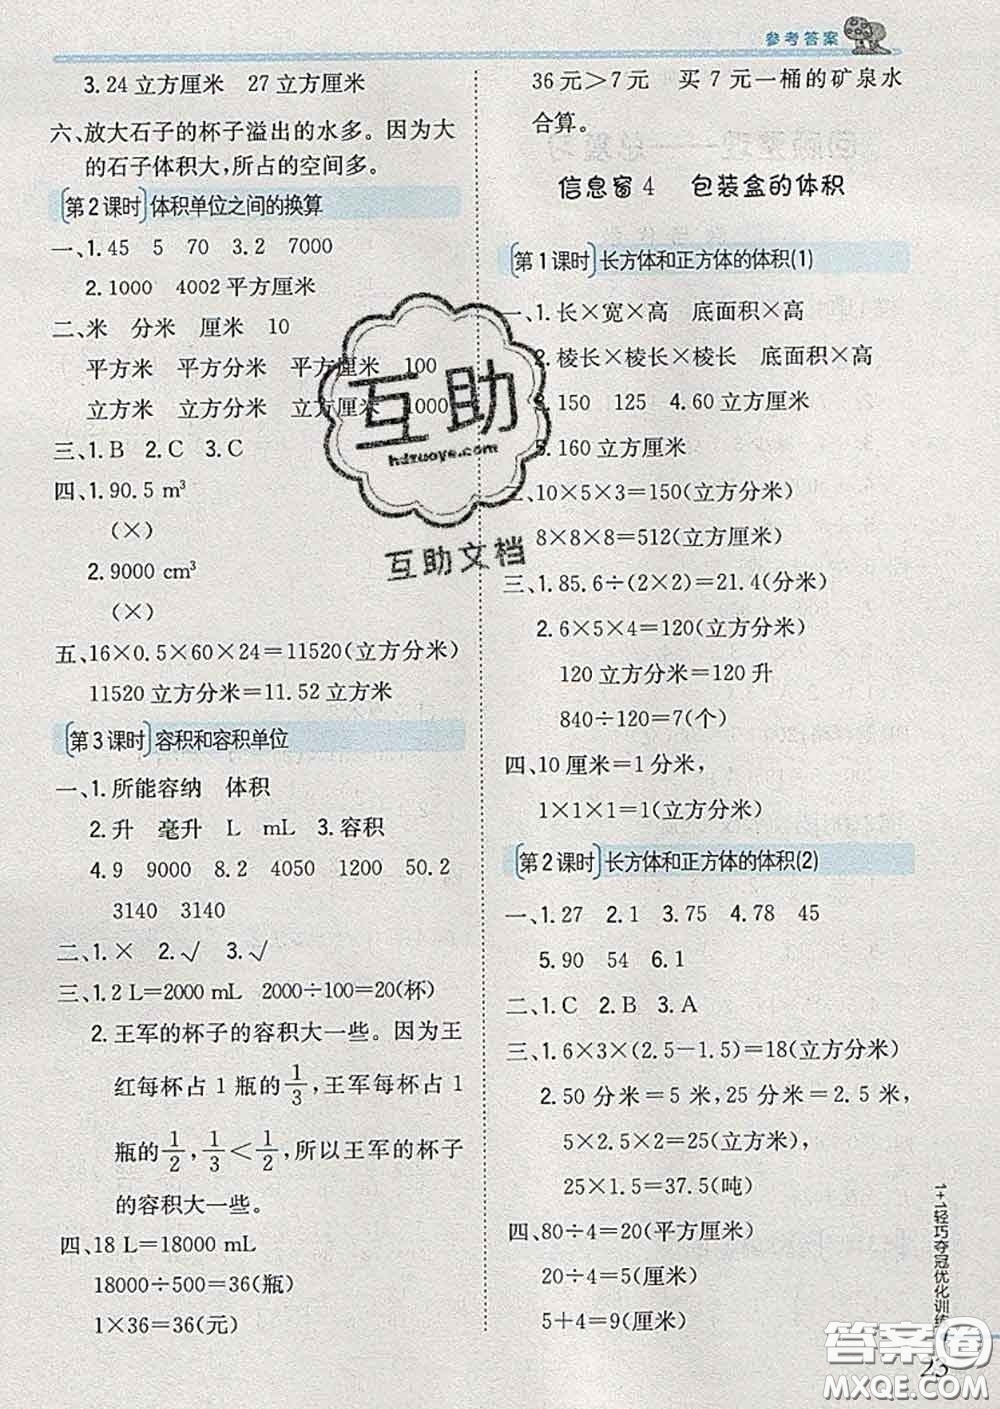 参考答案
3.24 立方厘米 27 立方厘米
六、放大石子的杯子溢出的水多。因为大
的石子体积大,所占的空间多。
第 2 课时 体积单位之间的换算
一、1.45 5 70 3.2 7000
2.1000 4002 平方厘米
二、米 分米 厘米 10
平方米 平方分米 平方厘米 100
立方米 立方分米 立方厘米 1000
三、1.B 2.C 3.C
四、1.90.5 m³
(×)
2.9000 cm³
(×)
五、16×0.5×60×24=11520(立方分米)
11520 立方分米=11.52 立方米
第 3 课时 容积和容积单位
一、1.所能容纳 体积
2.升 毫升 L mL 3.容积
4.9 9000 8.2 4050 1200 50.2
3140 3140
二、1.× 2.√ 3.√
三、1.2 L=2000 mL 2000÷100=20(杯)
2.王军的杯子的容积大一些。因为王
红每杯占 1 瓶的 1/3,王军每杯占 1
瓶的 1/2,1/3<1/2,所以王军的杯子
的容积大一些。
四、18 L=18000 mL
18000÷500=36(瓶)
1×36=36(元)
36 元>7 元 买 7 元一桶的矿泉水
合算。
信息窗 4 包装盒的体积
第 1 课时 长方体和正方体的体积(1)
一、1.长×宽×高 底面积×高
2.棱长×棱长×棱长 底面积×高
3.150 125 4.60 立方厘米
5.160 立方厘米
二、10×5×3=150(立方分米)
8×8×8=512(立方厘米)
三、1.85.6÷(2×2)=21.4(分米)
2.6×5×4=120(立方分米)
120 立方分米=120 升
840÷120=7(个)
四、10 厘米=1 分米,
1×1×1=1(立方分米)
第 2 课时 长方体和正方体的体积(2)
一、1.27 2.1 3.75 4.78 45
5.90 54 6.1
二、1.C 2.B 3.A
三、1.6×3×(2.5-1.5)=18(立方分米)
2.50 分米=5 米,25 分米=2.5 米,
5×2.5×2=25(立方米)
25×1.5=37.5(吨)
四、80÷4=20(平方厘米)
20÷4=5(厘米)
5+4=9(厘米)
1+1轻巧夺冠优化训练
23
互助
hdzuoye.com
互助文档
答案圈
MXQE.COM